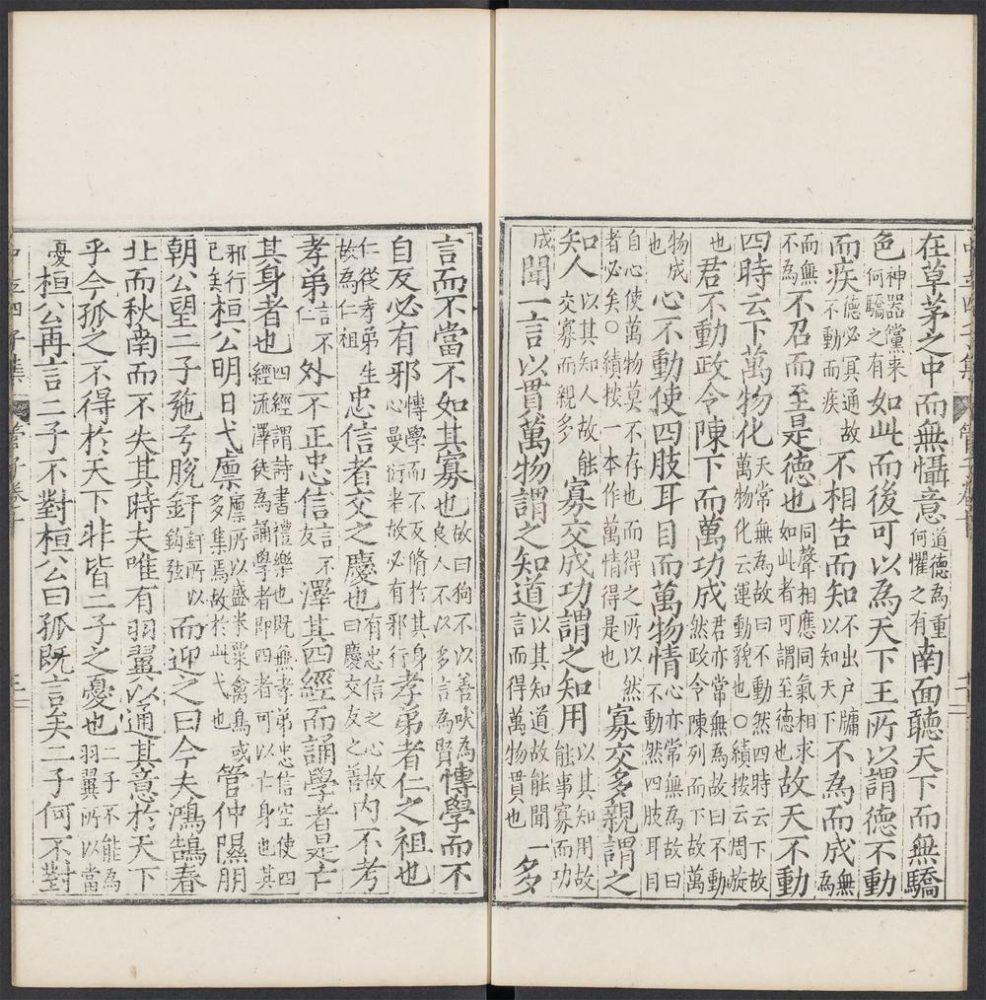 在草茅之中而無懾意道德為重何懼之有南面聽天下而無驕
色神器儻來何驕之有如此而後可以為天下王所以謂德不動
而疾德必冥通故不動而疾不相告而知不出戶牖以知天下不為而成無為
而無不為不召而至是德也同聲相應同氣相求如此者可謂至德也故天不動
四時云下萬物化天常無為故曰不動然四時云下故萬物化云運動貌也○續按云周旋
也君不動政令陳下而萬功成君亦常無為故曰不動然政令陳列而下故萬
物成也心不動使四肢耳目而萬物情心亦常無為故曰不動然四肢耳目
自心使萬物莫不存也而得之所以然者必矣○續按一本作萬情得是也寡交多親謂之
知人以其知人故能交寡而親多寡交成功謂之知用以其知用故能事寡而功
成聞一言以貫萬物謂之知道以其知道故能聞一言而得萬物貫也多
言而不當不如其寡也故曰狗不以善吠為良人不以多言為賢博學而不
自反必有邪博學而不反脩於其身心曼衍者故必有邪行孝弟者仁之祖也
仁從孝弟生故為仁祖忠信者交之慶也有忠信之心故曰慶交友之善內不考
孝弟言不仁外不正忠信言不友澤其四經而誦學者是亡
其身者也四經謂詩書禮樂也既無孝弟忠信空使四經流澤徒為誦學者即四者可以亡身也其
邪行已矣桓公明日弋廩廩所以盛米粟禽鳥或多集焉故於此弋也管仲隰朋
朝公望二子弛弓脫釬釬所以鈎弦而迎之曰今夫鴻鵠春
北而秋南而不失其時夫唯有羽翼以通其意於天下
乎今孤之不得於天下非皆二子之憂也二子不能為羽翼所以當
憂桓公再言二子不對桓公曰孤既言矣二子何不對